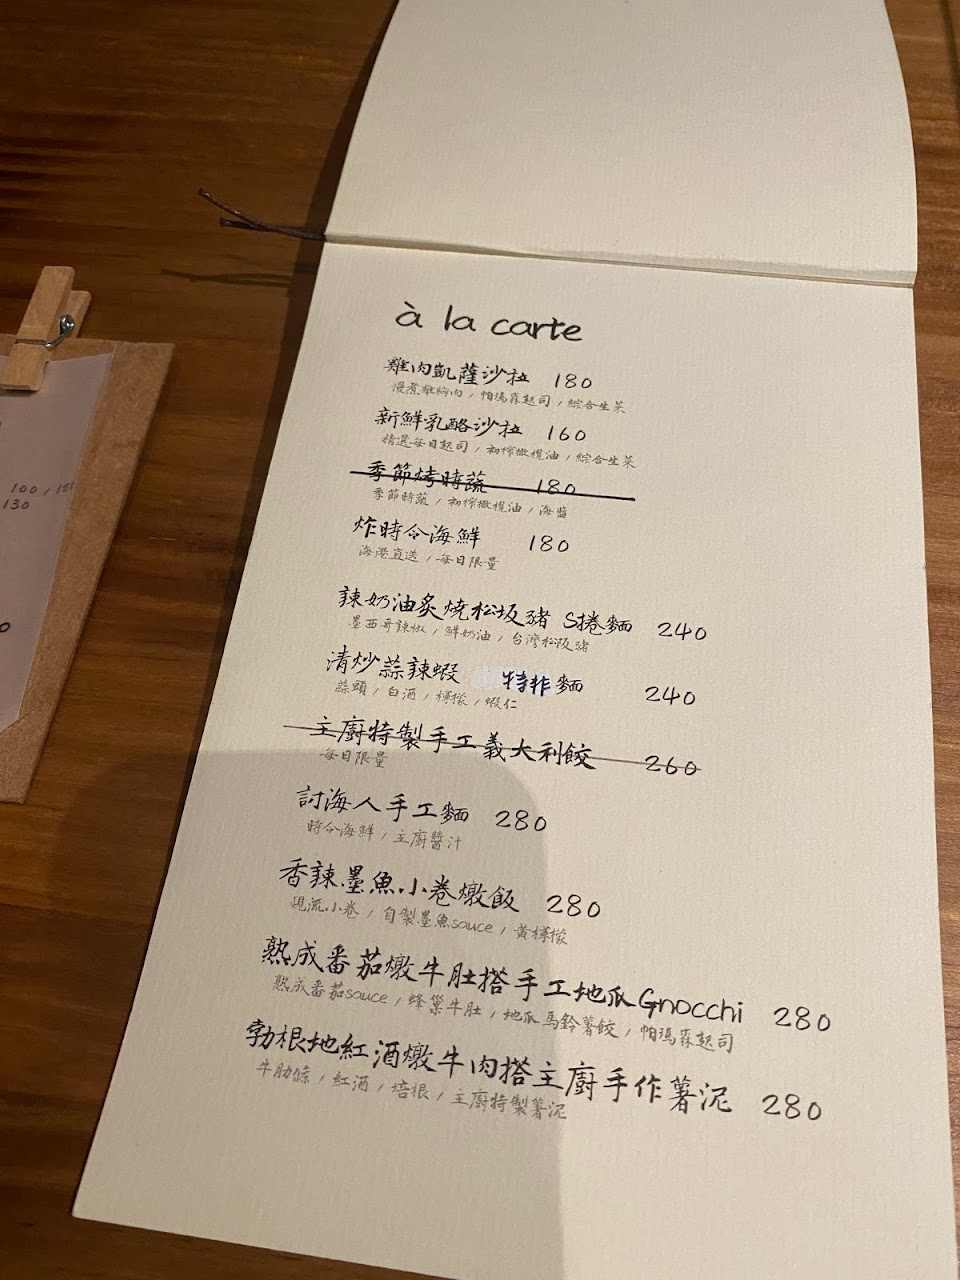 à la carte
雞肉凱薩沙拉 180
慢煮雞胸肉 / 帕瑪森起司 / 綜合生菜
新鮮乳酪沙拉 160
精選每日起司 / 初榨橄欖油 / 綜合生菜
季節烤時蔬 180
季節時蔬 / 初榨橄欖油 / 海鹽
炸時令海鮮 180
海港直送 / 每日限量
辣奶油炙燒松坂豬 S捲麵 240
墨西哥辣椒 / 鮮奶油 / 台灣松阪豬
清炒蒜辣蝦 特作麵 240
蒜頭 / 白酒 / 檸檬 / 蝦仁
主廚特製手工義大利餃 260
每日限量
討海人手工麵 280
時令海鮮 / 主廚醬汁
香辣墨魚小卷燉飯 280
現流小卷 / 自製墨魚sauce / 黃檸檬
熟成番茄燉牛肚搭手工地瓜Gnocchi 280
熟成番茄sauce / 蜂巢牛肚 / 地瓜馬鈴薯餃 / 帕瑪森起司
勃根地紅酒燉牛肉搭主廚手作薯泥 280
牛肋條 / 紅酒 / 培根 / 主廚特製薯泥
100 / 12
130
0